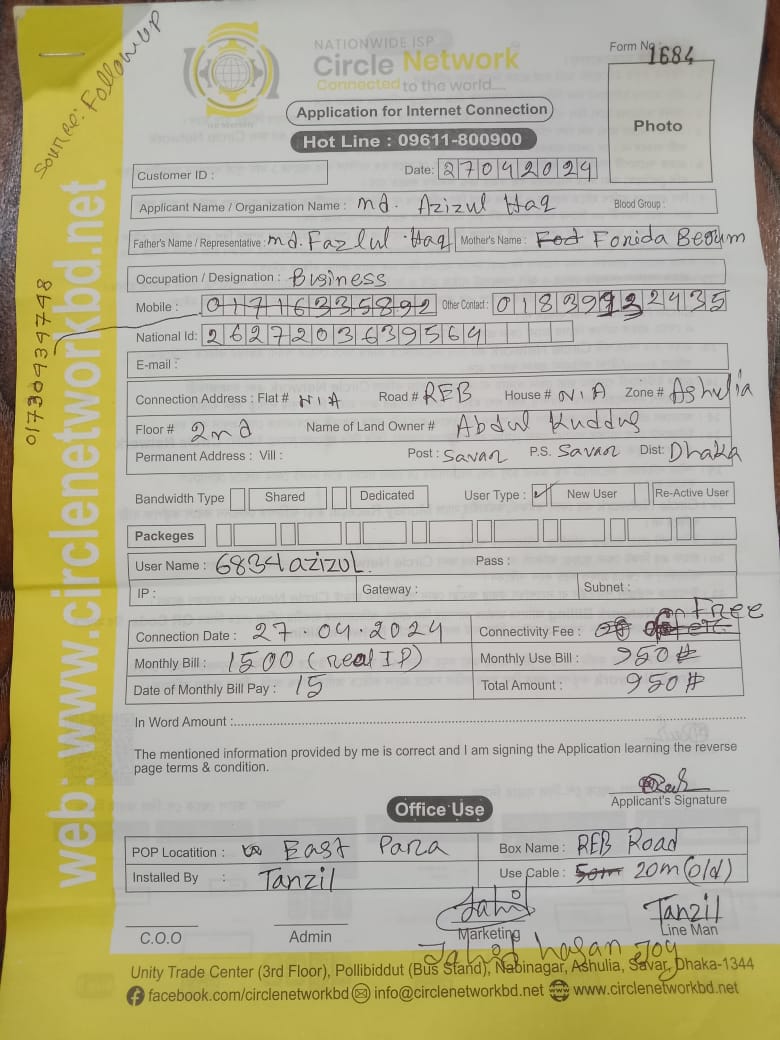 Source: Followup
NATIONWIDE ISP
Circle Network
Connected to the world....
Form No 1684
Application for Internet Connection
Hot Line : 09611-800900
Photo
Customer ID :
Date: 27042024
Applicant Name / Organization Name : Md. Azizul Haq Blood Group :
Father's Name / Representative : Md. Fazlul Haq Mother's Name : Fonida Begum
Occupation / Designation : Business
Mobile : 01716335892 Other Contact : 01839932435
01730434748
National Id: 2627203639564
E-mail :
Connection Address : Flat # N/A Road # REB House # N/A Zone # Ashulia
Floor # 2nd Name of Land Owner # Abdul Kuddus
Permanent Address : Vill : Post : Savar P.S. Savar Dist: Dhaka
Bandwidth Type Shared Dedicated User Type : ✓ New User Re-Active User
Packeges
User Name : 6834azizul Pass :
IP : Gateway : Subnet :
Connection Date : 27.04.2024 Connectivity Fee : Free
Monthly Bill : 1500 (real IP) Monthly Use Bill : 950#
Date of Monthly Bill Pay : 15 Total Amount : 950#
In Word Amount :
The mentioned information provided by me is correct and I am signing the Application learning the reverse
page terms & condition.
Applicant's Signature
Office Use
POP Locatition : East Para Box Name : REB Road
Installed By : Tanzil Use Cable : 50m 20m (old)
Jahid Tanzil
C.O.O Admin Marketing Line Man
Jahid hasan Joy
Unity Trade Center (3rd Floor), Pollibiddut (Bus Stand), Nabinagar, Ashulia, Savar, Dhaka-1344
facebook.com/circlenetworkbd info@circlenetworkbd.net www.circlenetworkbd.net
web: www.circlenetworkbd.net